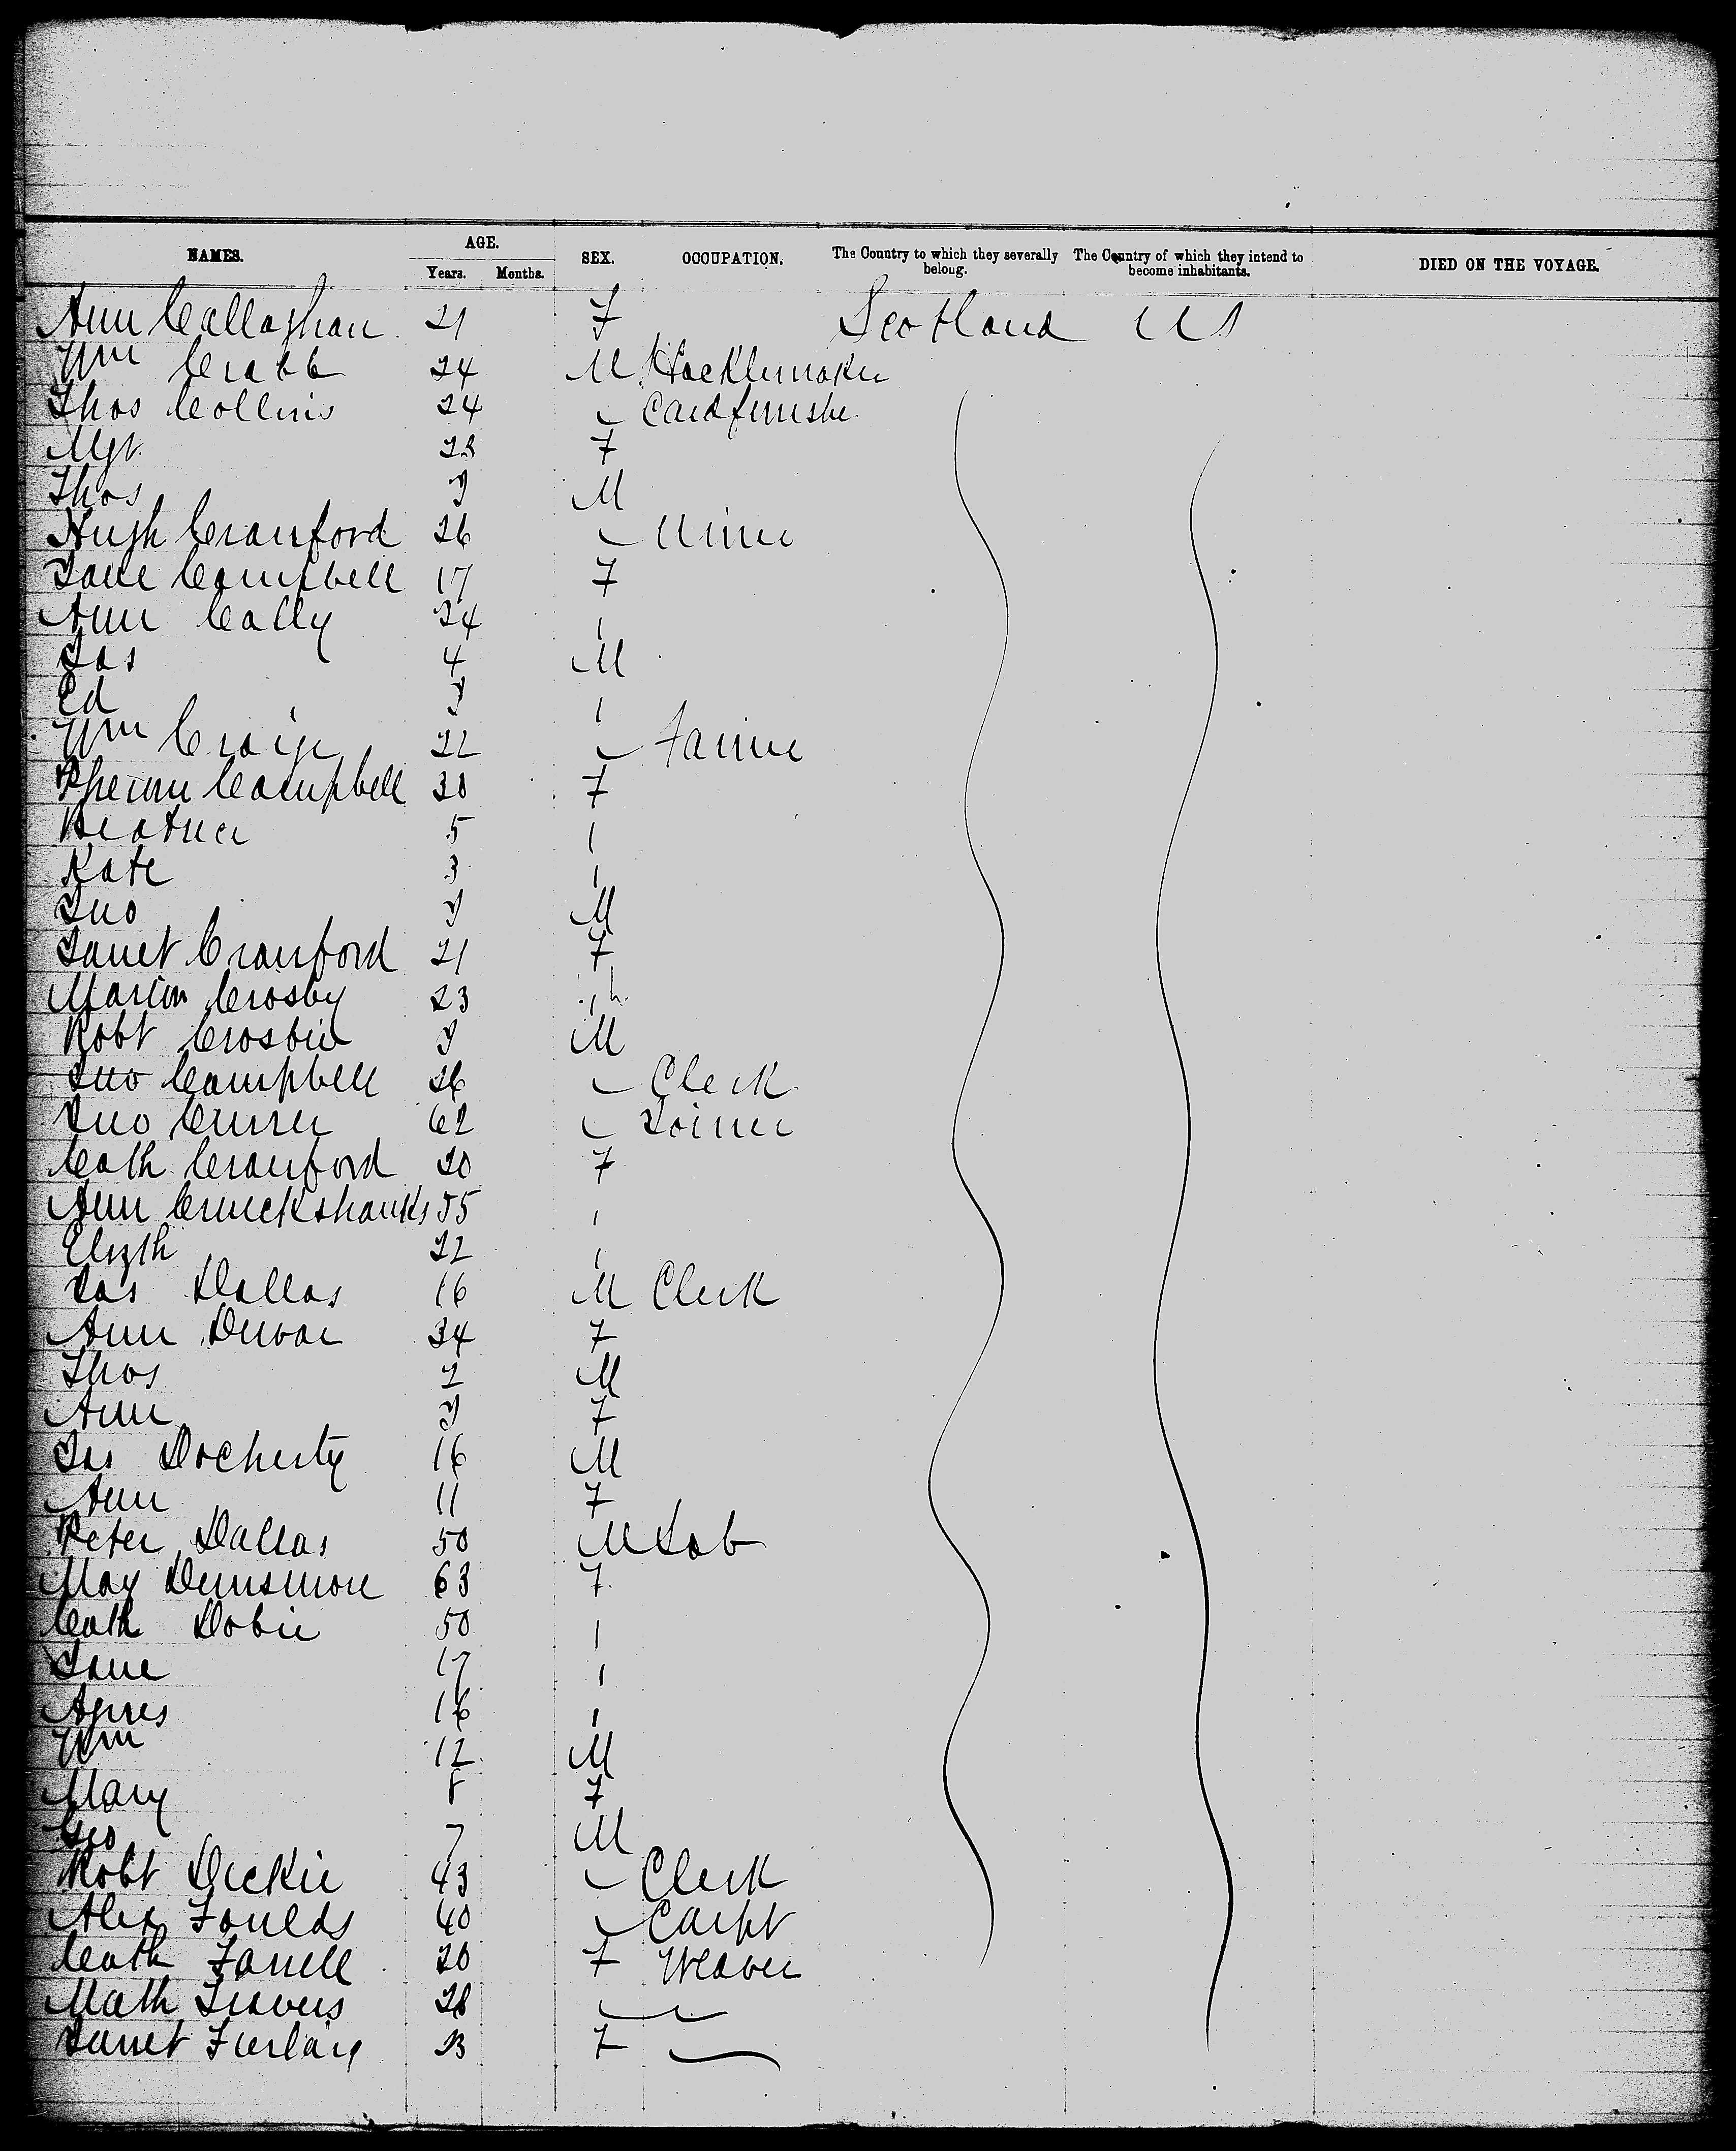 NAMES. AGE. Years. Months. SEX. OCCUPATION. The Country to which they severally belong. The Country of which they intend to become inhabitants. DIED ON THE VOYAGE.
Ann Callaghan 21 F Scotland US
Wm Crabb 24 M Hacklemaker
Thos Collins 24 Cardfinishe
Mgt 23 F
Thos M
Hugh Crawford 26 Miner
Jane Campbell 17 F
Ann Cally 24
Jas 4 M
Ed
Wm Craig 22 Farmer
Campbell 30 F
Beatrice 5
Kate 3
Jno M
Janet Crawford 21 F
Marion Crosby 23
Robt Crosbie M
Jno Campbell 26 Clerk
Jno 62 Joiner
Cath Crawford 20 F
Ann Cruickshanks 55
Elizth 22
Jas Dallas 16 M Clerk
Ann Dewar 34 F
Thos 2 M
Ann F
Jas Docherty 16 M
Ann 11 F
Peter Dallas 50 M Lab
May Dunsmore 63 F
Cath Dobie 50
Jane 17
Agnes 16
Wm 12 M
Mary 8 F
Geo 7 M
Robt Dickie 43 Clerk
Alex Foulds 40 Carpt
Cath Farrell 20 F Weaver
Math 28
Janet 23 F